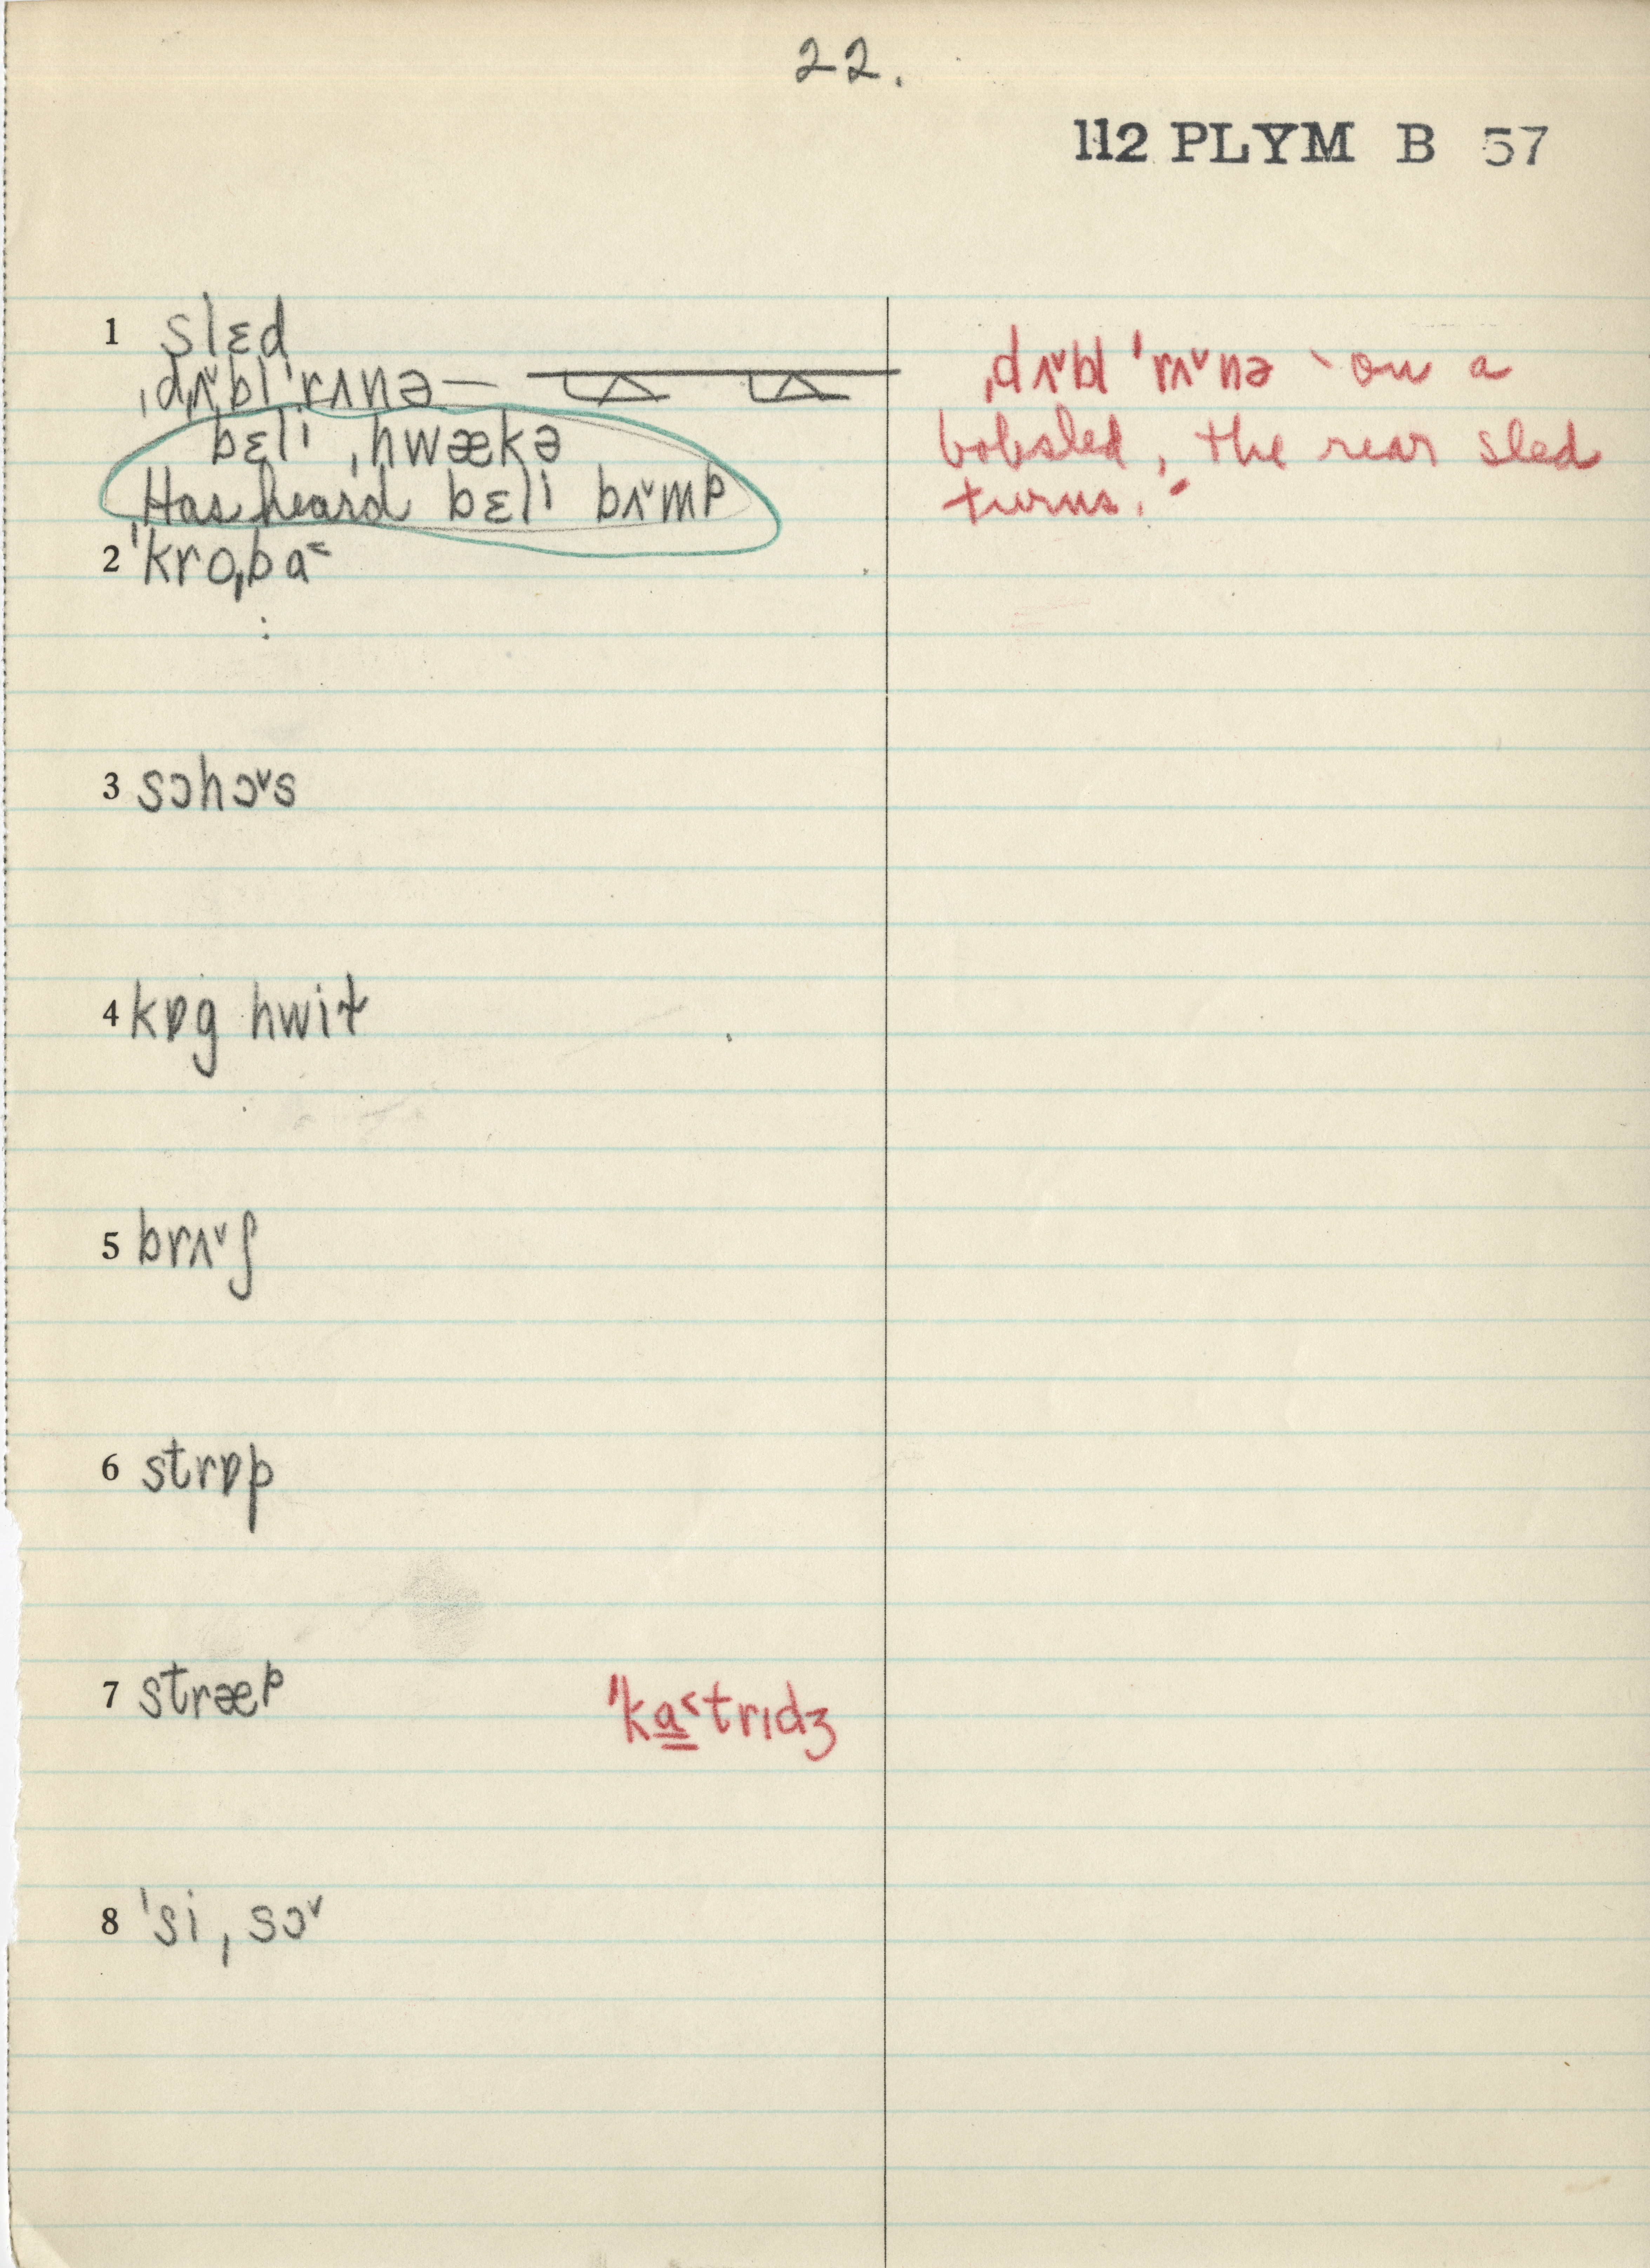 22.
112 PLYM B 57
1 slɛd
ˌdʌ˅bl ˈrʌnə —
bɛli ˌhwækə
Has heard bɛli bʌ˅mp
ˌdʌ˅bl ˈrʌ˅nə - on a
bobsled, the rear sled
turns.
2 ˈkroˌba˂
3 sɔhɔ˅s
4 kɒg hwit
5 brʌ˅ʃ
6 strɒp
7 stræp
ˈka˂trɪdʒ
8 ˈsiˌsɔ˅